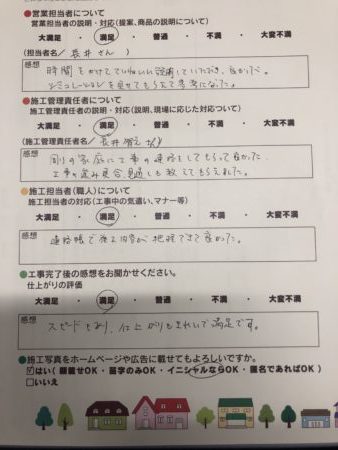 ●営業担当者について
営業担当者の説明・対応(提案、商品の説明について)
大満足 ・ 満足 ・ 普通 ・ 不満 ・ 大変不満
(担当者名/ 長井さん )
感想
時間をかけてていねいに説明していただき、良かった。
シミュレーションを見せてもらえて参考になった。
●施工管理責任者について
施工管理責任者の説明・対応(説明、現場に応じた対応ついて)
大満足 ・ 満足 ・ 普通 ・ 不満 ・ 大変不満
(施工管理責任者名/ 長井 さん )
感想
の家庭に工事の連絡をしてもらって良かった。
工事の進み具合、見通しも教えてもらえた。
●施工担当者(職人)について
施工担当者の対応(工事中の気遣い、マナー等)
大満足 ・ 満足 ・ 普通 ・ 不満 ・ 大変不満
感想
連絡帳で 内容が把握できて良かった。
●工事完了後の感想をお聞かせください。
仕上がりの評価
大満足 ・ 満足 ・ 普通 ・ 不満 ・ 大変不満
感想
スピードもあり、仕上がりもきれいで満足です。
●施工写真をホームページや広告に載せてもよろしいですか。
☑はい( 顔載せOK ・ 苗字のみOK ・ イニシャルならOK ・ 匿名であればOK )
□いいえ